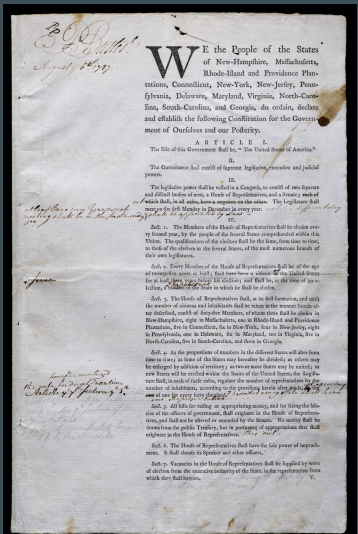 August 6th 1787.
WE the People of the States
of New-Hampshire, Massachusetts,
Rhode-Island and Providence Plan-
tations, Connecticut, New-York, New-Jersey, Penn-
sylvania, Delaware, Maryland, Virginia, North-Caro-
lina, South-Carolina, and Georgia, do ordain, declare
and establish the following Constitution for the Govern-
ment of Ourselves and our Posterity.
ARTICLE I.
The stile of this Government shall be, "The United States of America."
II.
The Government shall consist of supreme legislative, executive and judicial
powers.
III.
The legislative power shall be vested in a Congress, to consist of two separate
and distinct bodies of men, a House of Representatives, and a Senate; each of
which shall, in all cases, have a negative on the other. The Legislature shall
meet on the first Monday in December in every year.
IV.
Sect. 1. The Members of the House of Representatives shall be chosen eve-
ry second year, by the people of the several States comprehended within this
Union. The qualifications of the electors shall be the same, from time to time,
as those of the electors in the several States, of the most numerous branch of
their own legislatures.
Sect. 2. Every Member of the House of Representatives shall be of the age
of twenty-five years at least; shall have been a citizen of the United States
for at least three years before his election; and shall be, at the time of his e-
lection, a resident of the State in which he shall be chosen.
Sect. 3. The House of Representatives shall, at its first formation, and until
the number of citizens and inhabitants shall be taken in the manner herein af-
ter described, consist of sixty-five Members, of whom three shall be chosen in
New-Hampshire, eight in Massachusetts, one in Rhode-Island and Providence
Plantations, five in Connecticut, six in New-York, four in New-Jersey, eight
in Pennsylvania, one in Delaware, six in Maryland, ten in Virginia, five in
North-Carolina, five in South-Carolina, and three in Georgia.
Sect. 4. As the proportions of numbers in the different States will alter from
time to time; as some of the States may hereafter be divided; as others may
be enlarged by addition of territory; as two or more States may be united; as
new States will be erected within the limits of the United States, the Legisla-
ture shall, in each of these cases, regulate the number of representatives by the
number of inhabitants, according to the provisions herein after made, at the
rate of one for every forty thousand.
Sect. 5. All bills for raising or appropriating money, and for fixing the sala-
ries of the officers of government, shall originate in the House of Representa-
tives, and shall not be altered or amended by the Senate. No money shall be
drawn from the public Treasury, but in pursuance of appropriations that shall
originate in the House of Representatives.
Sect. 6. The House of Representatives shall have the sole power of impeach-
ment. It shall choose its Speaker and other officers.
Sect. 7. Vacancies in the House of Representatives shall be supplied by writs
of election from the executive authority of the State, in the representation from
which they shall happen.
V.